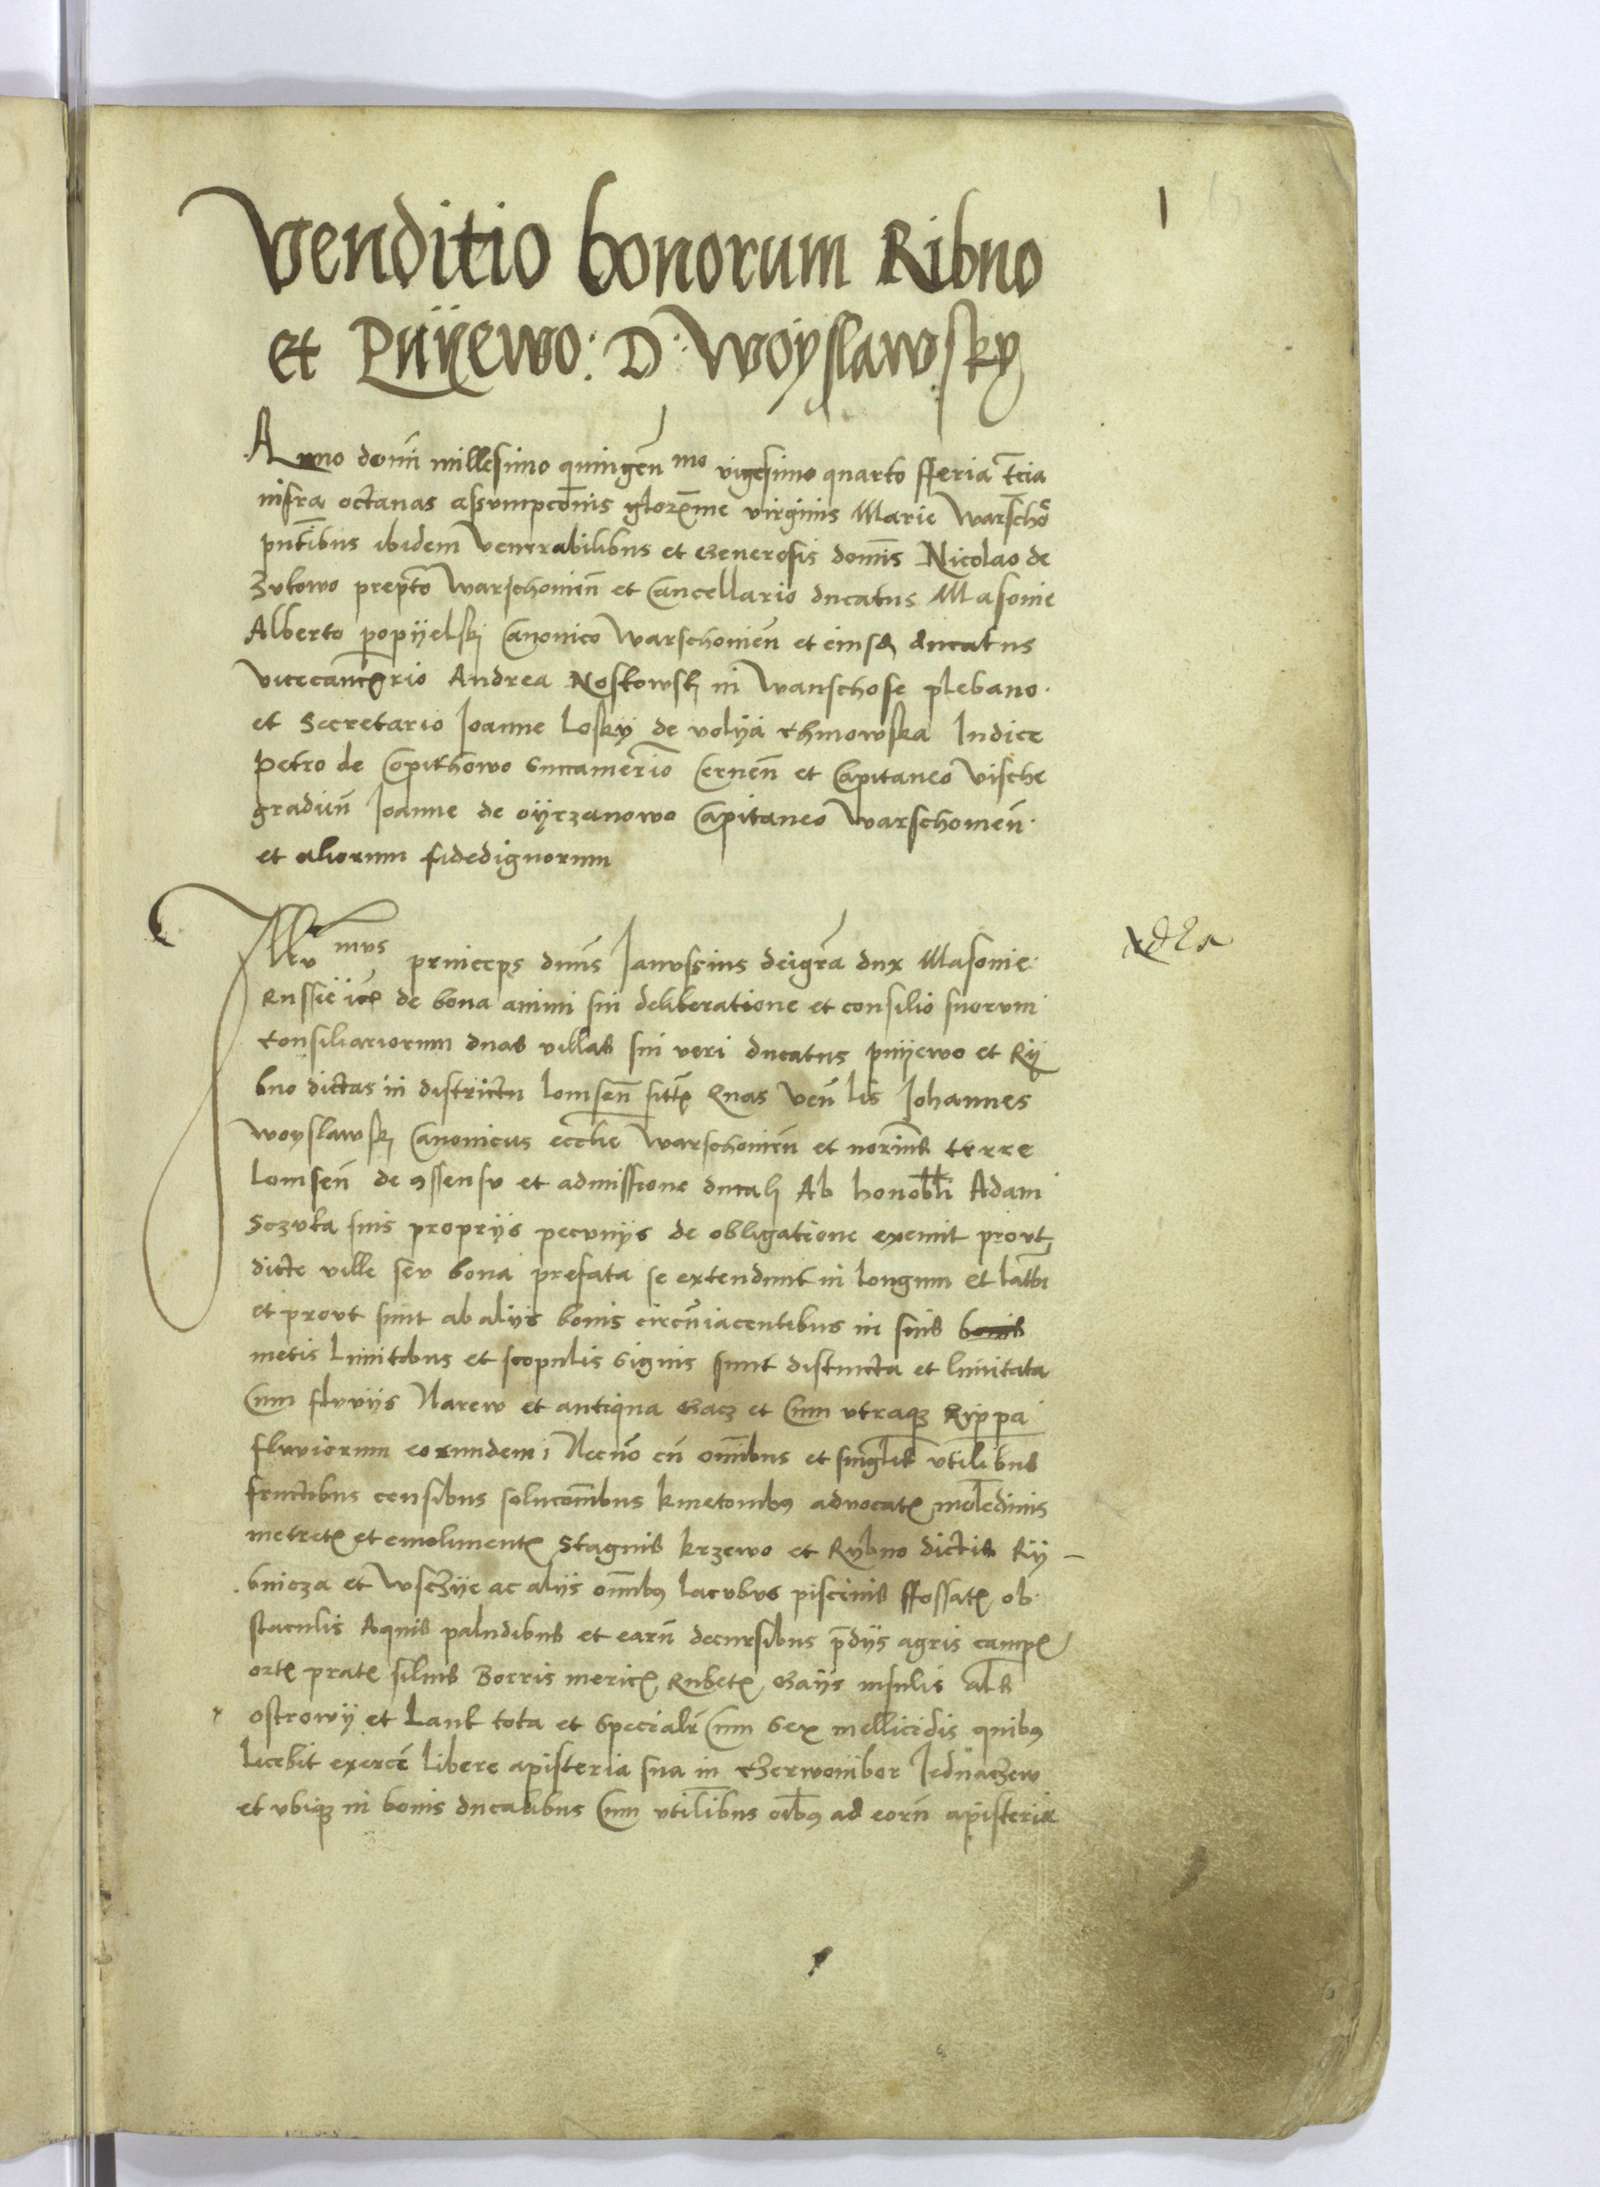 1
Venditio bonorum Ribno
et Pnÿewo: D: Woyslawsky
Anno domī millesimo quingenmo vigesimo quarto fferia t̄cia
infra octauas assumpcōnis gloz̄me virginis Marie Warscho
pn̄tibus ibidem venerabilibus et Generosis domīs Nicolao de
Zukowo prep̄to Warschouien̄ et Cancellario ducatus Masouie
Alberto popÿelskj Canonico Warschouien̄ et eiusd ducatus
vicecanc̄rio Andrea Noskowskj in Wanschose plebano
et Secretario Joanne Loskÿ de volÿa chmowska Judice
Petro de Copithowo Succamerio Cernen̄ et Capitaneo vische
gradien̄ Joanne de oÿrzanowo Capitaneo Warschouien̄
et aliorum fidedignorum
Illumus princeps dnūs Janussius deigr̄a dux Masouie
Russie ꝛc̄ de bona animi sui deliberatione et consilio suorum
consiliariorum duas villas sui veri ducatus pnÿewo et Rÿ
bno dictas in districtu lomsen̄ Quas ven̄lis Johannes
woyslawskj Canonicus eccl̄ie Warschouien̄ et terre
lomsen̄ de ꝯssensu et admissione ducalj Ab honobl̄i Adam
Sczuka suis proprÿs pecunÿs de obligatione exemit prout
dicte ville seu bona prefata se extendunt in longum et latū
et prout sunt ab alÿs bonis circūiacentibus in suis bonis
metis limitibus et scopulis signis sunt distincta et limitata
Cum fluvÿs Narew et antiqua Gacz et Cum vtraqꝫ Rÿppa
fluviorum eorundem Necnō cū om̄ibus et singlis vtilibus
fructibus censibus solucōnibus kmetonibꝰ advocatꝭ molēdinis
metretꝭ et emolumentꝭ Stagnis krzewo et Rybno dictis Rÿ-
bnicza et Wschÿe ac alÿs om̄ibꝰ lacubus piscinis ffossatꝭ ob
staculis Aquis paludibus et earū decursibus p̄dÿs agris campꝭ
ortꝭ pratꝭ siluis Borris mericꝭ Rubetꝭ Gaÿs insulis al̄s
ostrowÿ et Lank tota et Specialr̄ Cum sex mellicidis quibꝰ
licebit exercē libere apisteria sua in czerwonibor Jednaczew
et vbiqꝫ in bonis ducalibus Cum vtilibus oībꝰ ad eorū apisteria